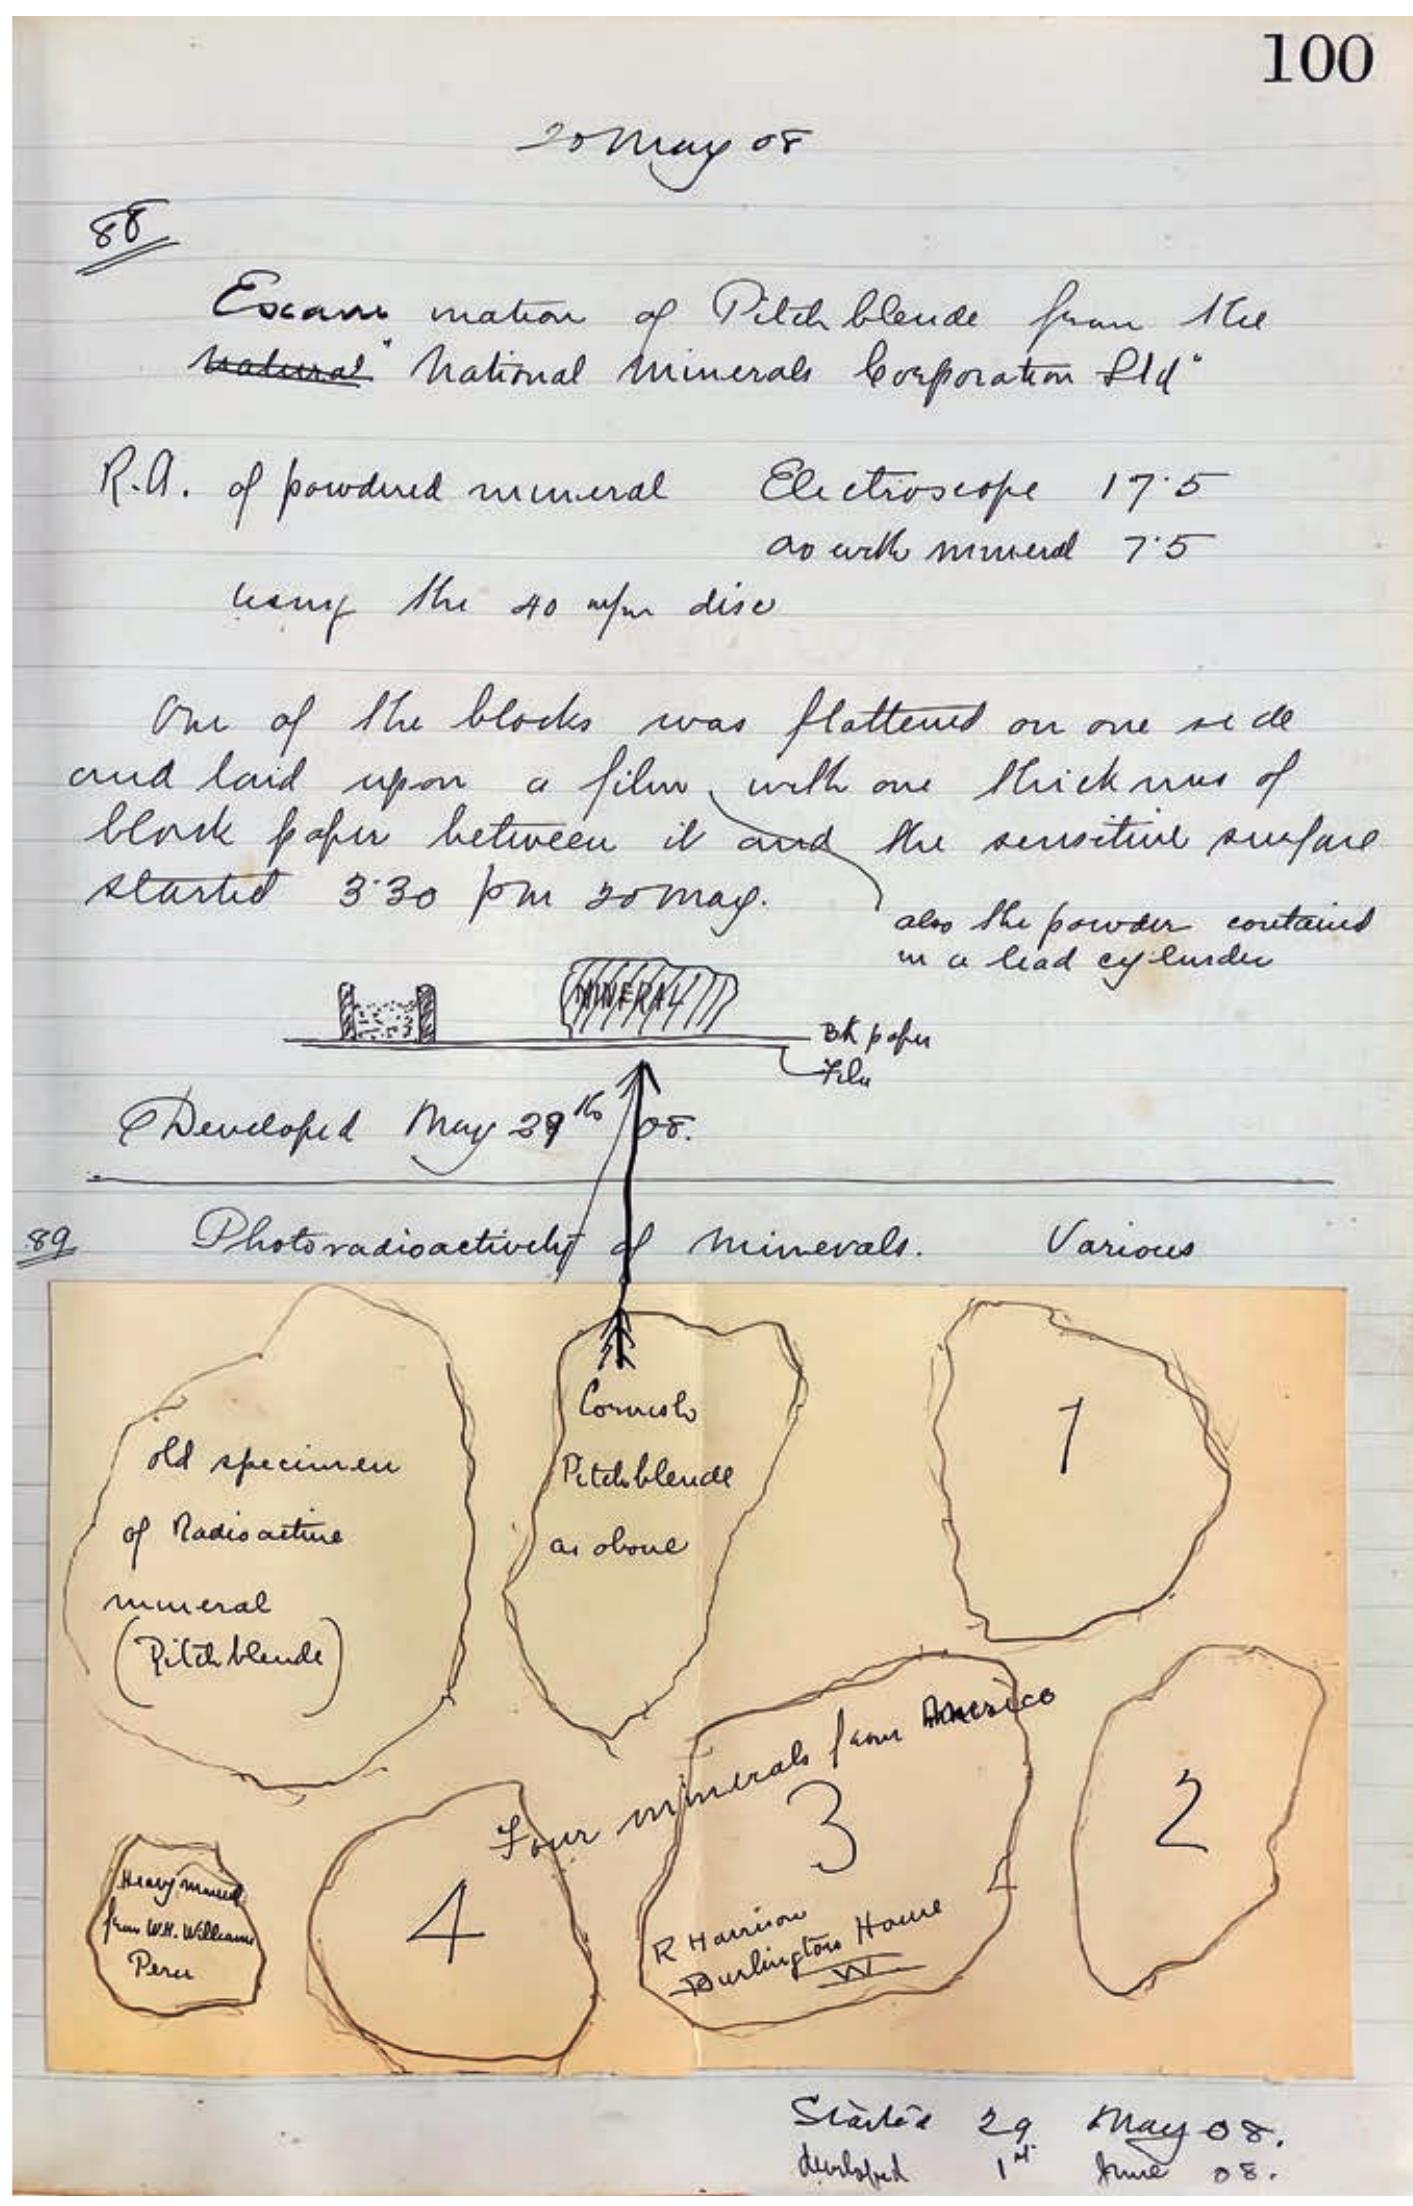 100
20 May 08
88
Examination of Pitchblende from the
natural "National Minerals Corporation Ltd"
R.A. of powdered mineral Electroscope 17·5
Do with mineral 7·5
using the 40 m/m disc
One of the blocks was flattened on one side
and laid upon a film, with one thickness of
black paper between it and the sensitive surface
started 3·30 pm 20 May.
also the powder contained
in a lead cylinder
MINERAL
Bk paper
Film
Developed May 29th 08.
89 Photoradioactivity of minerals. Various
old specimen
of Radioactive
mineral
(Pitchblende)
Cornish
Pitchblende
as above
1
Four minerals from America
2
3
R Harrison
Burlington House
W
4
Heavy mineral
from W.H. Williams
Peru
Started 29 May 08.
developed 1st June 08.